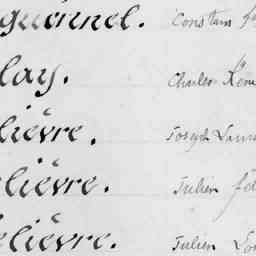 guennel. Constan
lay. Charles Réné
lièvre. Joseph
elièvre. Julien fé
elièvre. Julien